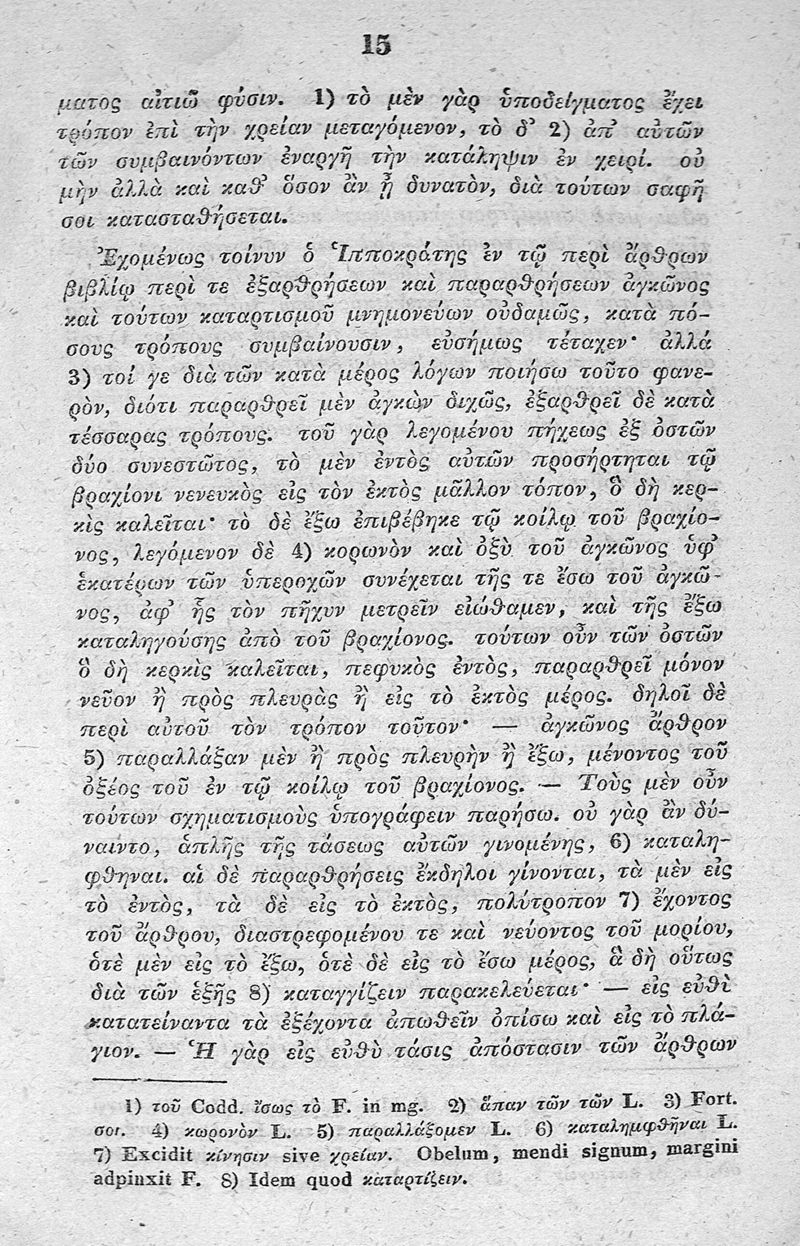 15
ματος αἰτιῶ φύσιν. 1) τὸ μὲν γὰρ ὑποδείγματος ἔχει
τρόπον ἐπὶ τὴν χρείαν μεταγόμενον, τὸ δ᾽ 2) ἀπ᾽ αὐτῶν
τῶν συμβαινόντων ἐναργῆ τὴν κατάληψιν ἐν χειρί. οὐ
μὴν ἀλλὰ καὶ καθ᾽ ὅσον ἂν ᾖ δυνατὸν, διὰ τούτων σαφῆ
σοι κατασταθήσεται.
Ἐχομένως τοίνυν ὁ Ἱπποκράτης ἐν τῷ περὶ ἄρθρων
βιβλίῳ περὶ τε ἐξαρθρήσεων καὶ παραρθρήσεων ἀγκῶνος
καὶ τούτων καταρτισμοῦ μνημονεύων οὐδαμῶς, κατὰ πό-
σους τρόπους συμβαίνουσιν, εὐσήμως τέταχεν· ἀλλά
3) τοί γε διὰ τῶν κατὰ μέρος λόγων ποιήσω τοῦτο φανε-
ρὸν, διότι παραρθρεῖ μὲν ἀγκὼν διχῶς, ἐξαρθρεῖ δὲ κατὰ
τέσσαρας τρόπους. τοῦ γὰρ λεγομένου πήχεως ἐξ ὀστῶν
δύο συνεστῶτος, τὸ μὲν ἐντὸς αὐτῶν προσήρτηται τῷ
βραχίονι νενευκὸς εἰς τὸν ἐκτὸς μᾶλλον τόπον, ὃ δὴ κερ-
κὶς καλεῖται· τὸ δὲ ἔξω ἐπιβέβηκε τῷ κοίλῳ τοῦ βραχίο-
νος, λεγόμενον δὲ 4) κορωνὸν καὶ ὀξὺ τοῦ ἀγκῶνος ὑφ᾽
ἑκατέρων τῶν ὑπεροχῶν συνέχεται τῆς τε ἔσω τοῦ ἀγκῶ-
νος, ἀφ᾽ ἧς τὸν πῆχυν μετρεῖν εἰώθαμεν, καὶ τῆς ἔξω
καταληγούσης ἀπὸ τοῦ βραχίονος. τούτων οὖν τῶν ὀστῶν
ὃ δὴ κερκὶς καλεῖται, πεφυκὸς ἐντὸς, παραρθρεῖ μόνον
νεῦον ἢ πρὸς πλευρὰς ἢ εἰς τὸ ἐκτὸς μέρος. δηλοῖ δὲ
περὶ αὐτοῦ τὸν τρόπον τοῦτον· — ἀγκῶνος ἄρθρον
5) παραλλάξαν μὲν ἢ πρὸς πλευρὴν ἢ ἔξω, μένοντος τοῦ
ὀξέος τοῦ ἐν τῷ κοίλῳ τοῦ βραχίονος. — Τοὺς μὲν οὖν
τούτων σχηματισμοὺς ὑπογράφειν παρήσω. οὐ γὰρ ἂν δύ-
ναιντο, ἁπλῆς τῆς τάσεως αὐτῶν γινομένης, 6) καταλη-
φθηναι. αἱ δὲ παραρθρήσεις ἔκδηλοι γίνονται, τὰ μὲν εἰς
τὸ ἐντὸς, τὰ δὲ εἰς τὸ ἐκτὸς, πολύτροπον 7) ἔχοντος
τοῦ ἄρθρου, διαστρεφομένου τε καὶ νεύοντος τοῦ μορίου,
ὁτὲ μὲν εἰς τὸ ἔξω, ὁτὲ δὲ εἰς τὸ ἔσω μέρος, ἃ δὴ οὕτως
διὰ τῶν ἑξῆς 8) καταγγίζειν παρακελεύεται· — εἰς εὐθὺ
κατατείναντα τὰ ἐξέχοντα ἀπωθεῖν ὀπίσω καὶ εἰς τὸ πλά-
γιον. — Ἡ γὰρ εἰς εὐθὺ τάσις ἀπόστασιν τῶν ἄρθρων
1) τοῦ Codd. ἴσως τὸ F. in mg. 2) ἅπαν τῶν τῶν L. 3) Fort.
σοι. 4) κωρονὸν L. 5) παραλλάξομεν L. 6) καταλημφθῆναι L.
7) Excidit κίνησιν sive χρείαν. Obelum, mendi signum, margini
adpinxit F. 8) Idem quod καταρτίζειν.